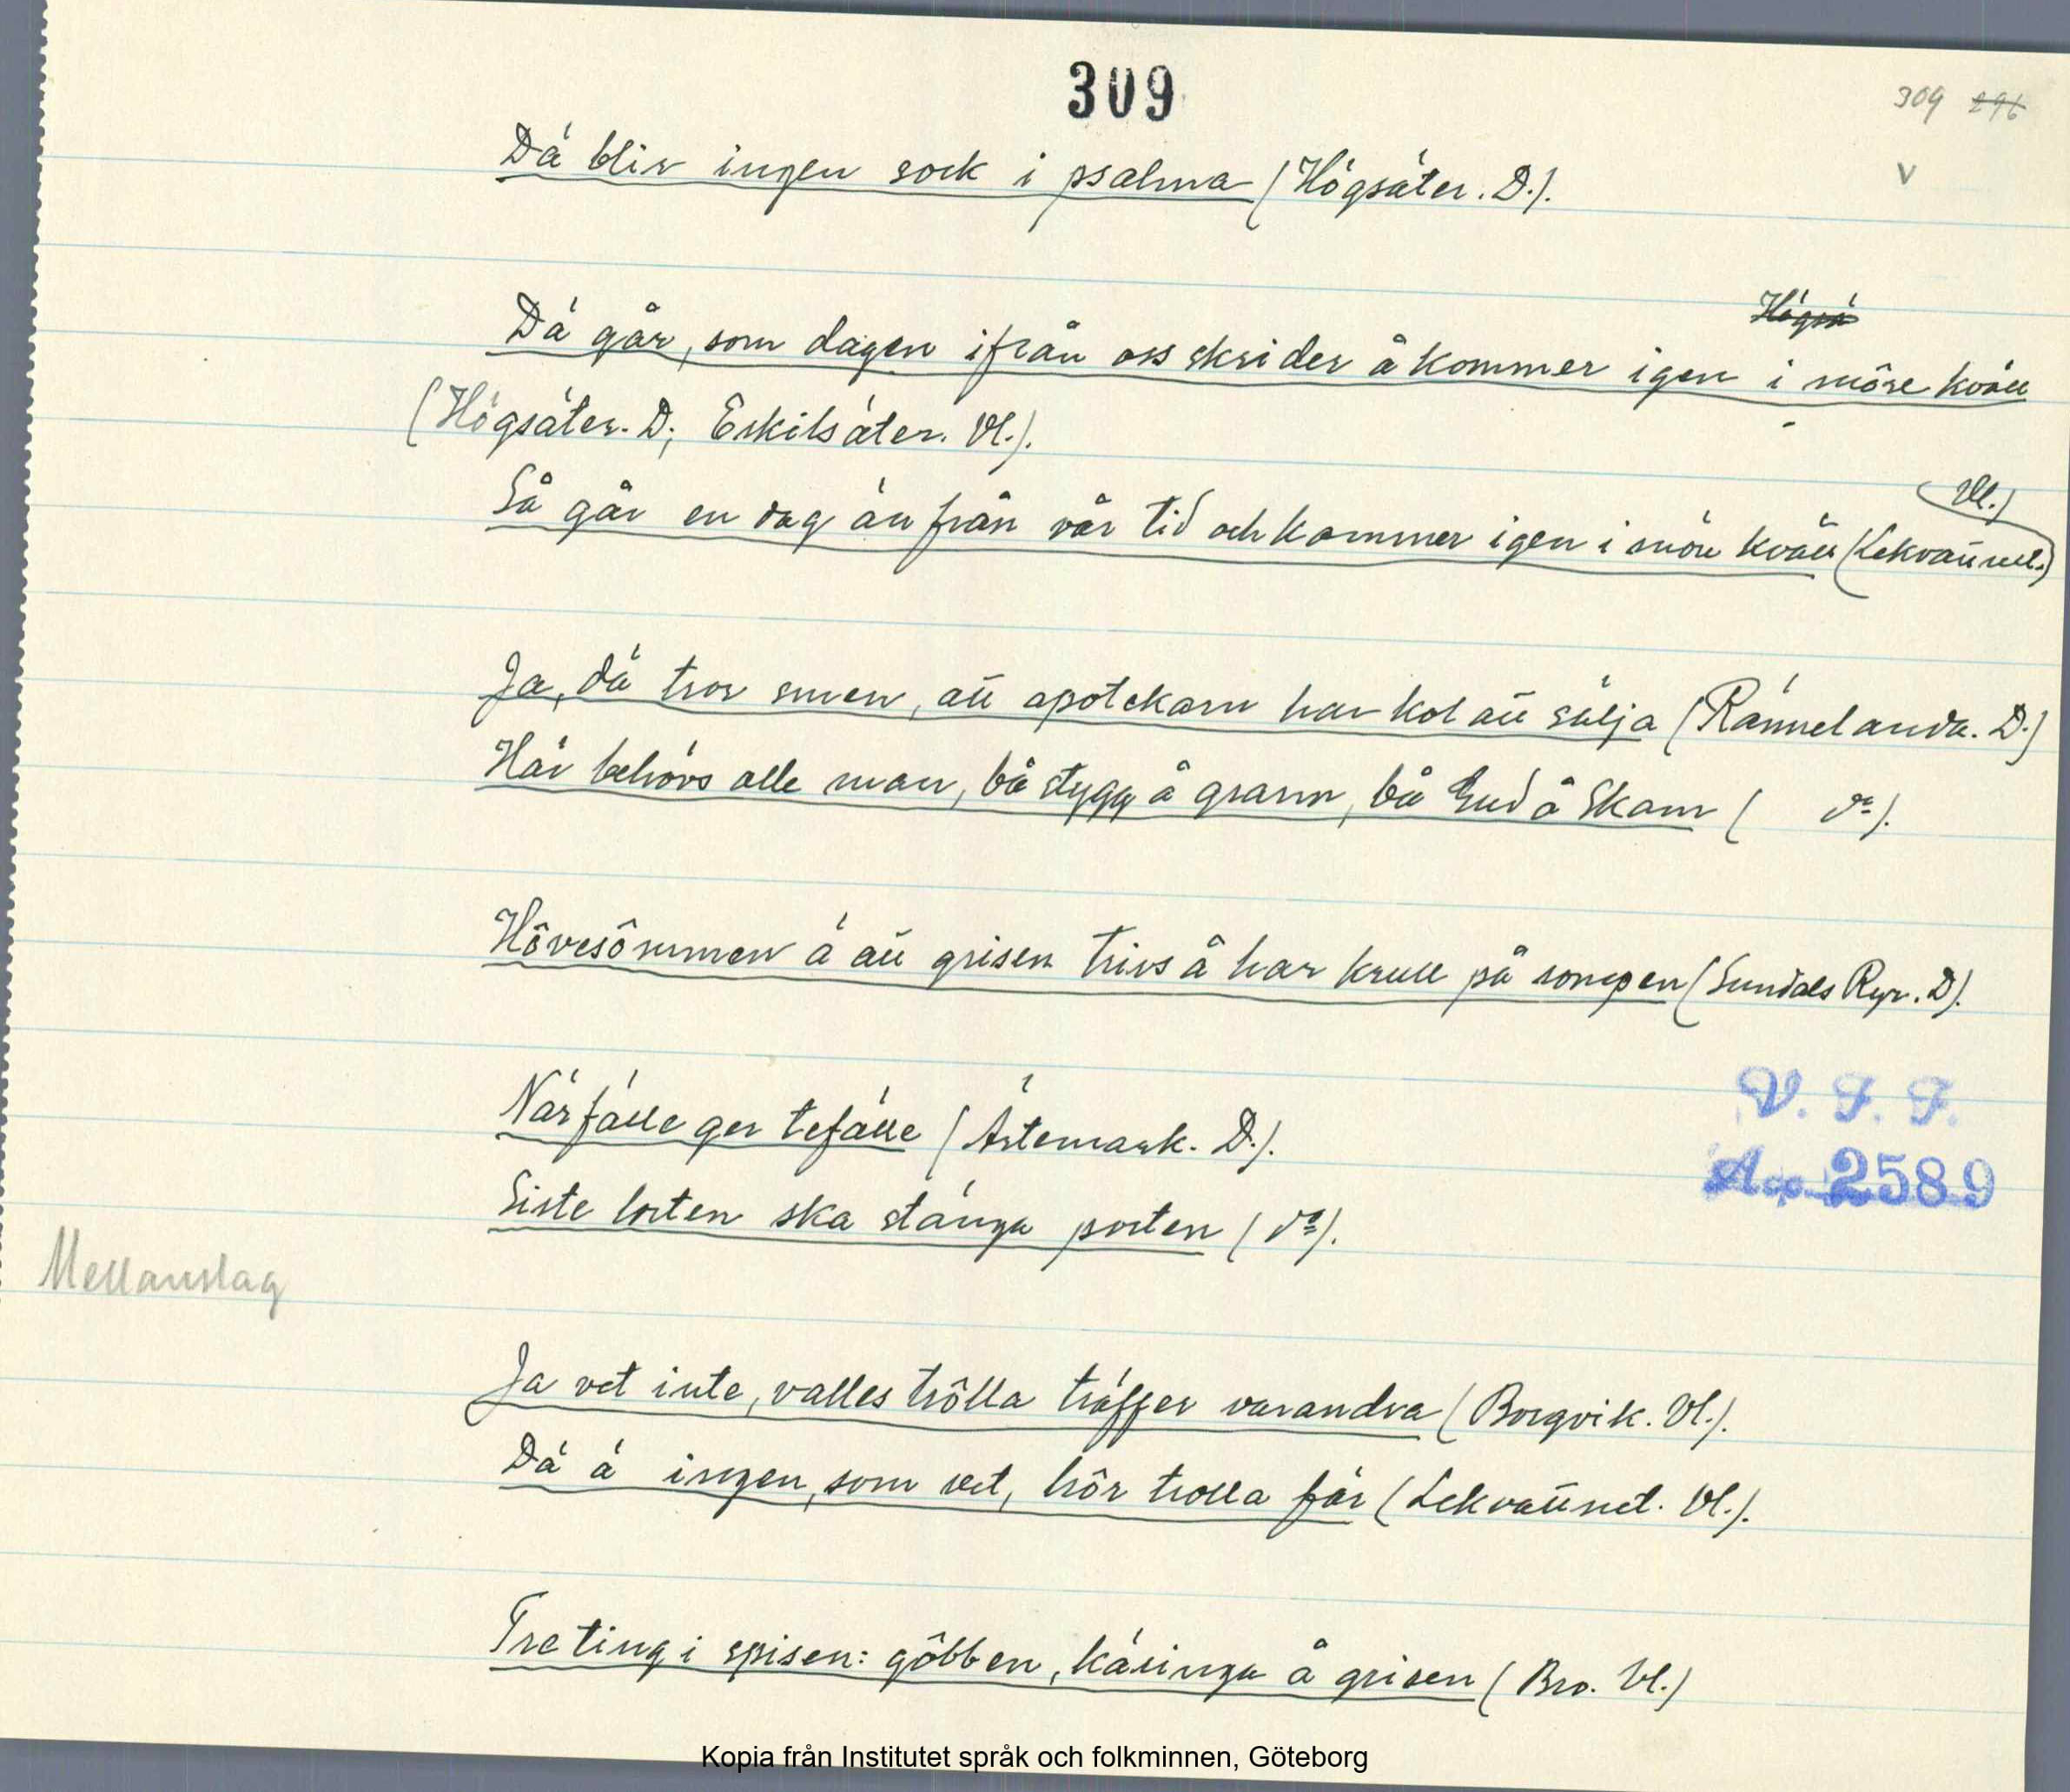 309
309 296
V
Dä blir ingen sock i psalma (Högsäter. D.).
Högsä
Dä går, som dagen ifrån oss skrider å kommer igen i môre kväll
(Högsäter. D; Eskilsäter. Vl.).
Så går en dag än från vår tid och kommer igen i môre kväll (Lekvattnet. Vl.)
Ja, dä tror smen, att apotekarn har kol att sälja (Rännelanda. D.)
Här behövs alle man, bå stygg å grann, bå Gud å Skam ( do).
Hôvesômmen ä att grisen trivs å har krull på rompen (Sundals Ryr. D).
Närfälle ger tefälle (Ärtemark. D.).
V. F. F.
Acc. 2589
Siste lorten ska stänga porten (do).
Mellanslag
Ja vet inte, valles trôlla träffer varandra (Borgvik. Vl.).
Dä ä ingen, som vet, hôr trolla får (Lekvattnet. Vl.).
Tre ting i spisen: gôbben, käringa å grisen (Bro. Vl.)
Kopia från Institutet språk och folkminnen, Göteborg